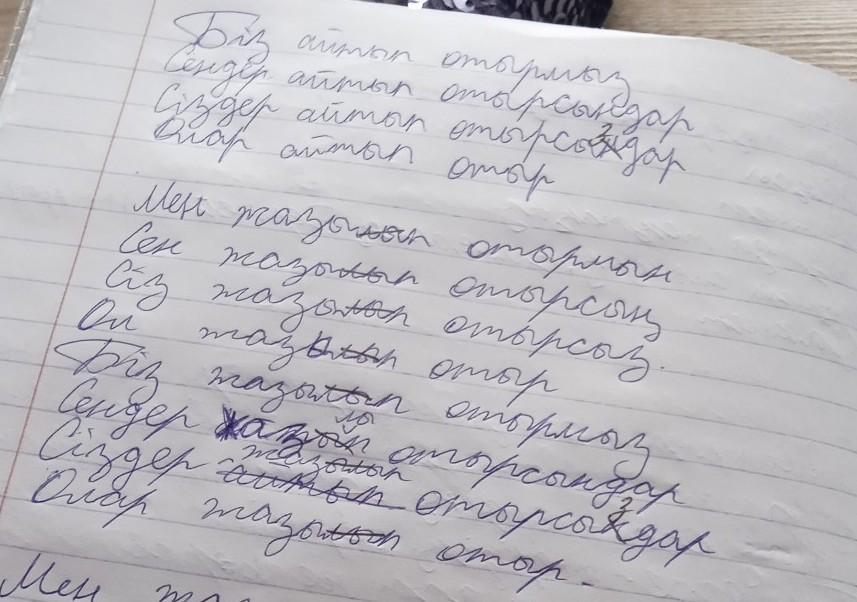 Біз айтып отырмыз
Сендер айтып отырсыңдар
Сіздер айтып отырсыздар
Олар айтып отыр
Мен жазып отырмын
Сен жазып отырсың
Сіз жазып отырсыз.
Ол жазып отыр
Біз жазып отырмыз
Сендер отырсыңдар
Сіздер жазып отырсыздар
Олар жазып отыр.
Мен